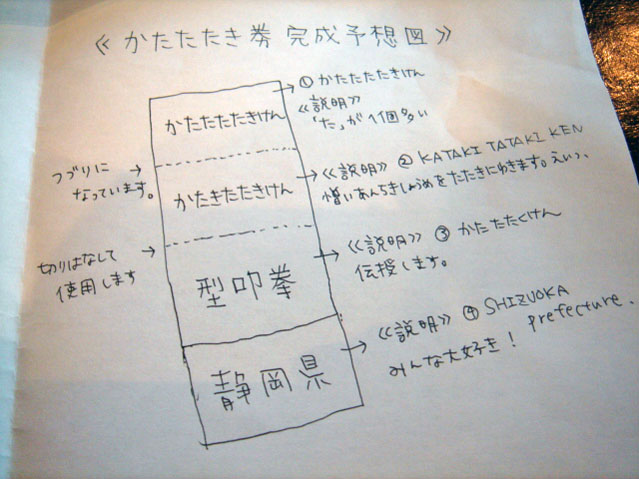 《かたたたき券 完成予想図》
かたたたたきけん
→ ① かたたたたきけん
《説明》
「た」が1個多い
つづりに →
なっています。
かたきたたきけん
→《説明》② KATAKI TATAKI KEN
憎いあんちきしょうめをたたきにゆきます。えいっ、
切りはなして →
使用します
型叩拳
→《説明》③ かたたたくけん
伝授します。
静岡県
→《説明》④ SHIZUOKA
prefecture.
みんな大好き!